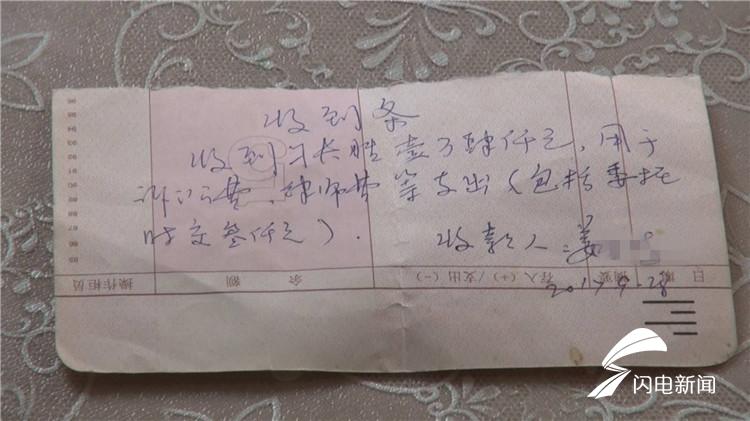 收到条
收到长胜壹万肆仟元，用于
诉讼费、律师费等支出（包括委托
时交叁仟元）.
收款人：姜
2017.9.28
日期 摘要 存入(+)/支出(-) 余额 操作柜员
闪电新闻